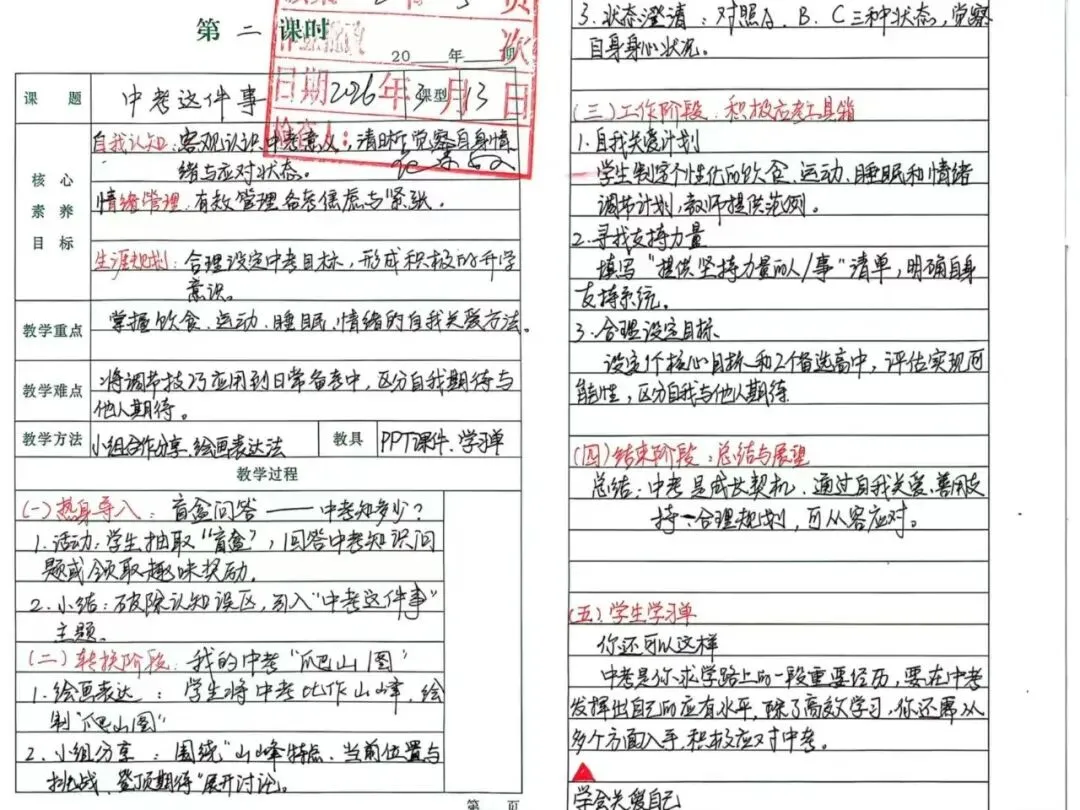 第二课时
页次
20 年 期
日期 2026年3月13日
课题 中考这件事 课型
核心素养目标
自我认知:客观认识中考意义,清晰觉察自身情
绪与应对状态。
情绪管理:有效管理备考焦虑与紧张。
生涯规划:合理设定中考目标,形成积极的升学
意识。
教学重点 掌握饮食、运动、睡眠、情绪的自我关爱方法。
教学难点 将调节技巧应用到日常备考中,区分自我期待与
他人期待。
教学方法 小组合作分享、绘画表达法 教具 PPT课件、学习单
教学过程
(一)热身导入:盲盒问答——中考知多少?
1.活动:学生抽取“盲盒”,回答中考知识问
题或领取趣味奖励。
2.小结:破除认知误区,引入“中考这件事”
主题。
(二)转换阶段:我的中考“爬山图”
1.绘画表达:学生将中考比作山峰,绘
制“爬山图”
2.小组分享:围绕“山峰特点、当前位置与
挑战、登顶期待”展开讨论。
第 页
3.状态澄清:对照A、B、C三种状态,觉察
自身身心状况。
(三)工作阶段:积极应考工具箱
1.自我关爱计划
学生制定个性化的饮食、运动、睡眠和情绪
调节计划,教师提供范例。
2.寻找支持力量
填写“提供坚持力量的人/事”清单,明确自身
支持系统。
3.合理设定目标
设定1个核心目标和2个备选高中,评估实现可
能性,区分自我与他人期待
(四)结束阶段:总结与展望
总结:中考是成长契机,通过自我关爱、善用支
持、合理规划,可从容应对。
(五)学生学习单
你还可以这样
中考是你求学路上的一段重要经历,要在中考
发挥出自己的应有水平,除了高效学习,你还需从
多个方面入手,积极应对中考。
学会关爱自己